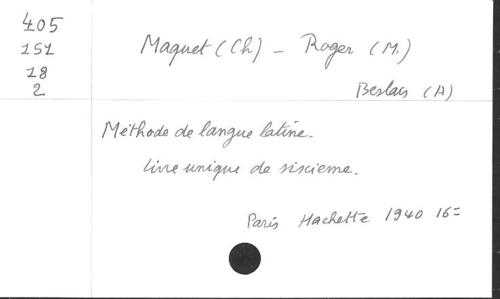 405
151
18
2
Maquet (Ch) - Roger (M.)
Beslais (A)
Méthode de langue latine.
Livre unique de sixieme.
Paris Hachette 1940 16=